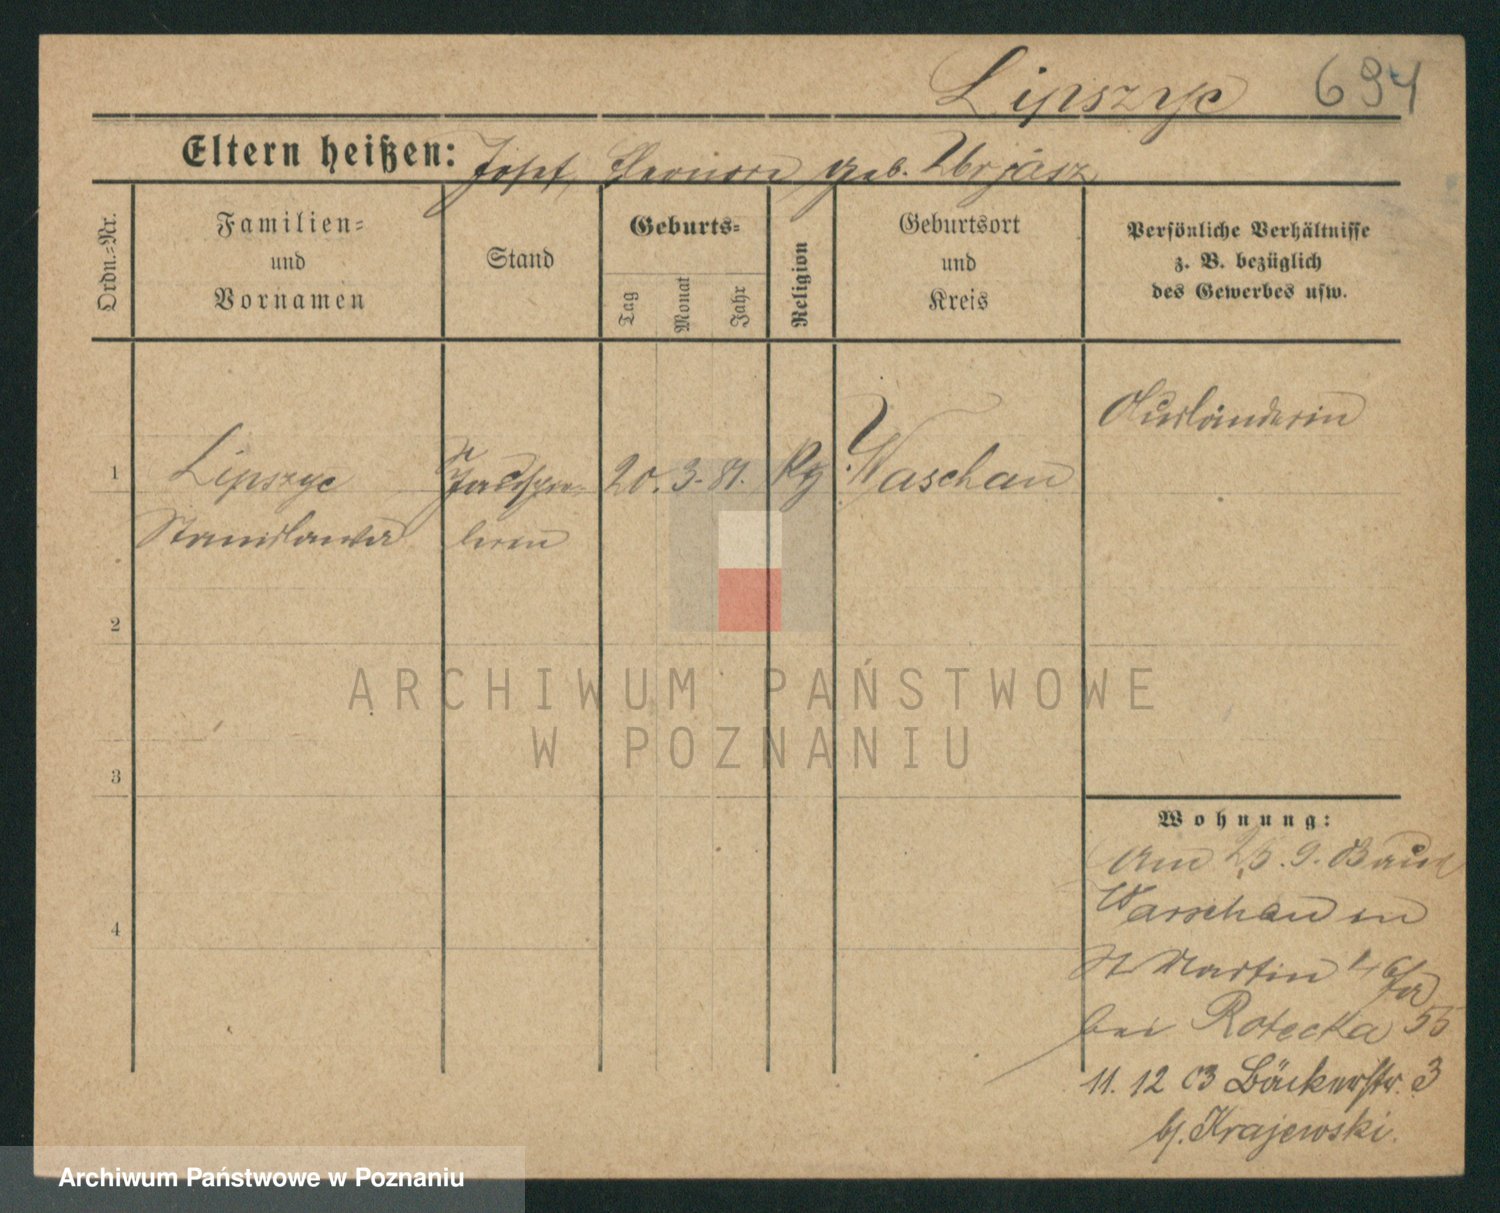 Lipszyc 694
Eltern heißen: Josef, Leonore geb. Ubrjasz
Ordn.=Nr.
Familien=
und
Vornamen
Stand
Geburts=
Tag
Monat
Jahr
Religion
Geburtsort
und
Kreis
Persönliche Verhältnisse
z. B. bezüglich
des Gewerbes usw.
Ausländerin
1 Lipszyc 20. 3. 81. Waschau
Stanislawa
2
3
4
Wohnung:
Am 25. 9. 03 aus
Warschau in
St Martin
bei Rotecka 55
11. 12 03 Bäckerstr. 3
bj. Krajewski.
ARCHIWUM PAŃSTWOWE
W POZNANIU
Archiwum Państwowe w Poznaniu